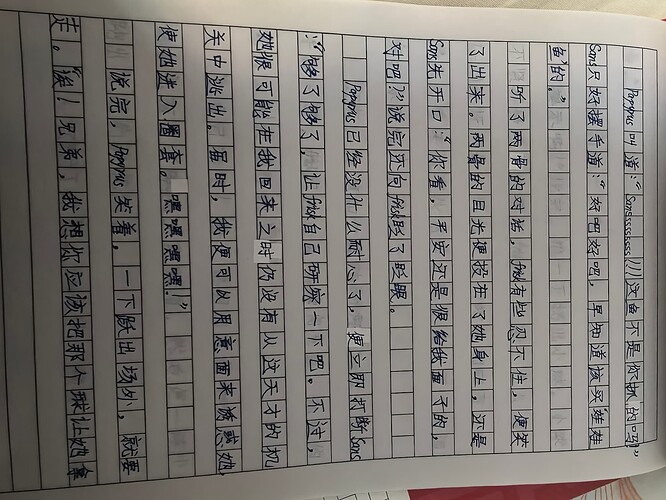 Papyrus叫道:“Sansssssssss!!!这鱼不是你抓的吗?”
Sans只好摆手道:“好吧好吧,早知道该买‘娃娃
鱼’的。”
听了两骨的对话,frisk有些忍不住,便笑
了出来。两骨的目光便投在了她身上,还是
Sans先开口:“你看,平安还是很给我面子的,
对吧?”说完还向frisk眨了眨眼。
Papyrus已经没什么耐心了,便立即打断Sans
:“够了够了,让frisk自己研察一下吧。不过,
她很可能在我回来之时仍没有从这天才的机
关中逃出。届时,我便可以用意面来诱惑她,
使她进入圈套。嘿嘿嘿嘿!”
说完,Papyrus笑着,一下跃出场外,就要
走。“诶!兄弟,我想你应该把那个球让她拿